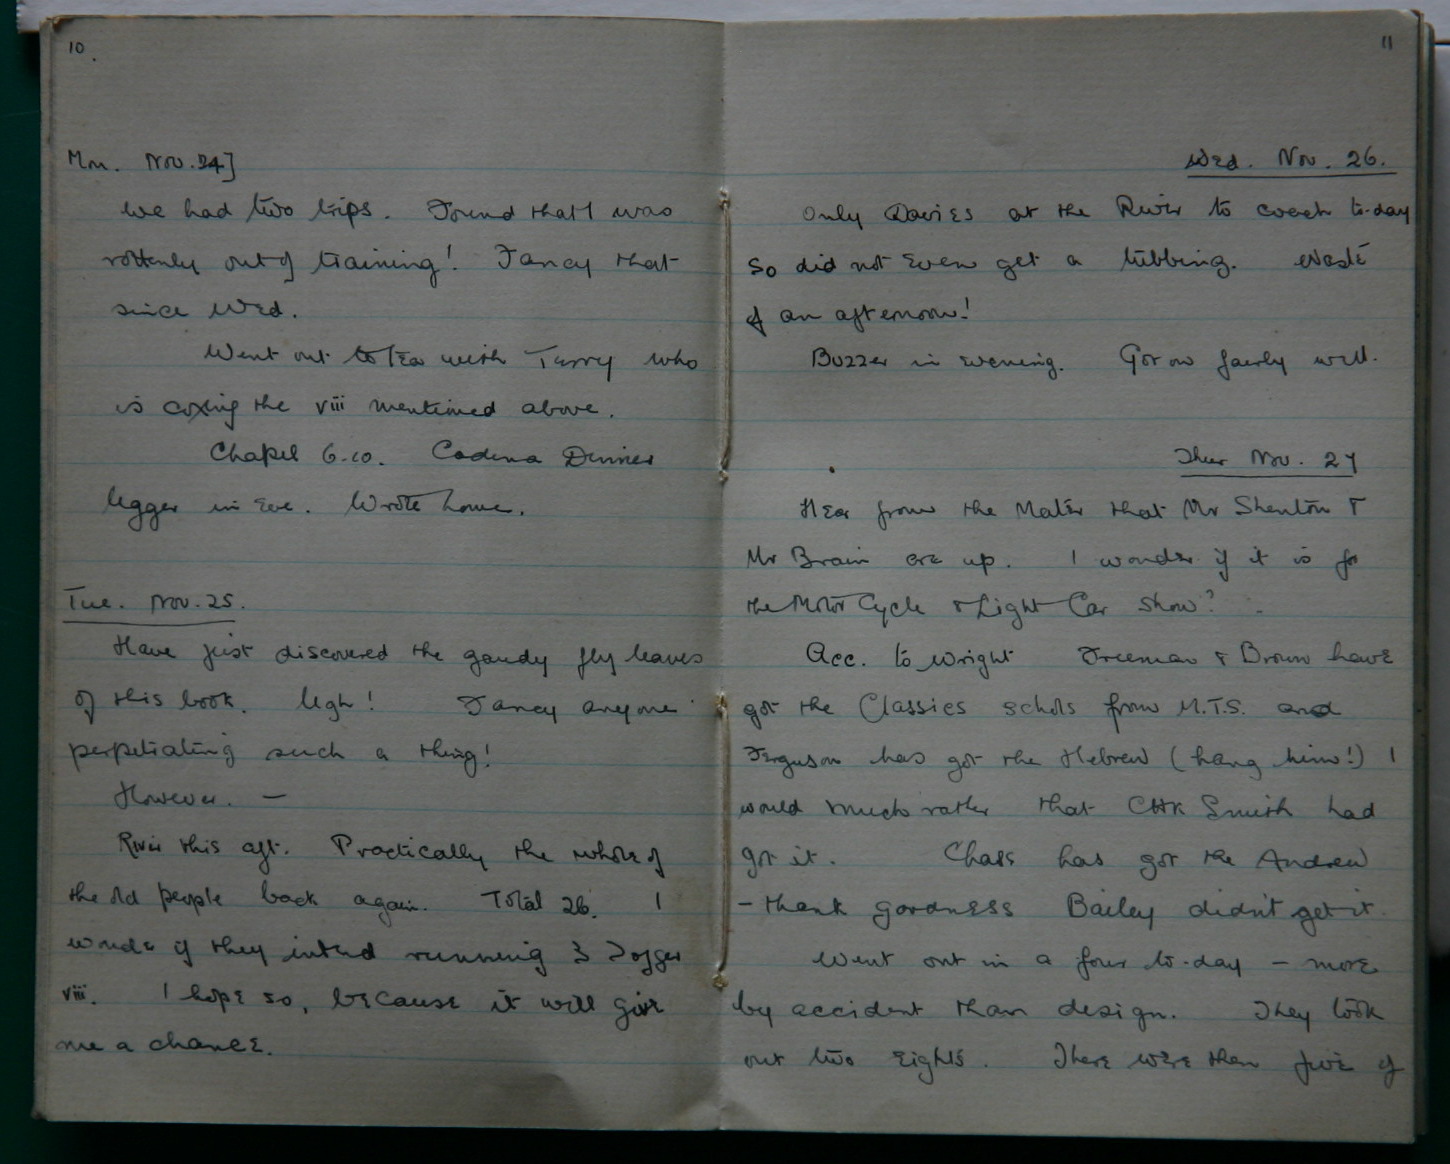 10
Mon. Nov. 24]
We had two trips. Found that I was
rottenly out of training! Fancy that
since Wed.
Went out to tea with Turry who
is coxing the viii mentioned above.
Chapel 6.10. Cadena Dinner
legger in Eve. Wrote home.
Tue. Nov. 25.
Have just discovered the gaudy fly leaves
of this book. Ugh! Fancy anyone
perpetrating such a thing!
However. —
River this aft. Practically the whole of
the old people back again. Total 26. I
wonder if they intend running 3 Togger
viii. I hope so, because it will give
me a chance.
11
Wed. Nov. 26.
Only Davies at the River to coach to-day
so did not even get a tubbing. Waste
of an afternoon!
Buzzer in evening. Got on fairly well.
Thur Nov. 27
Hear from the Mater that Mr Shenton &
Mr Brain are up. I wonder if it is for
the Motor Cycle & Light Car Show?
Acc. to Wright Freeman & Brown have
got the Classics schols from M.T.S. and
Ferguson has got the Hebrew (hang him!) I
would much rather that CHK Smith had
got it. Chass has got the Andrew
- thank goodness Bailey didn't get it.
Went out in a four to-day - more
by accident than design. They took
out two eights. There were then five of